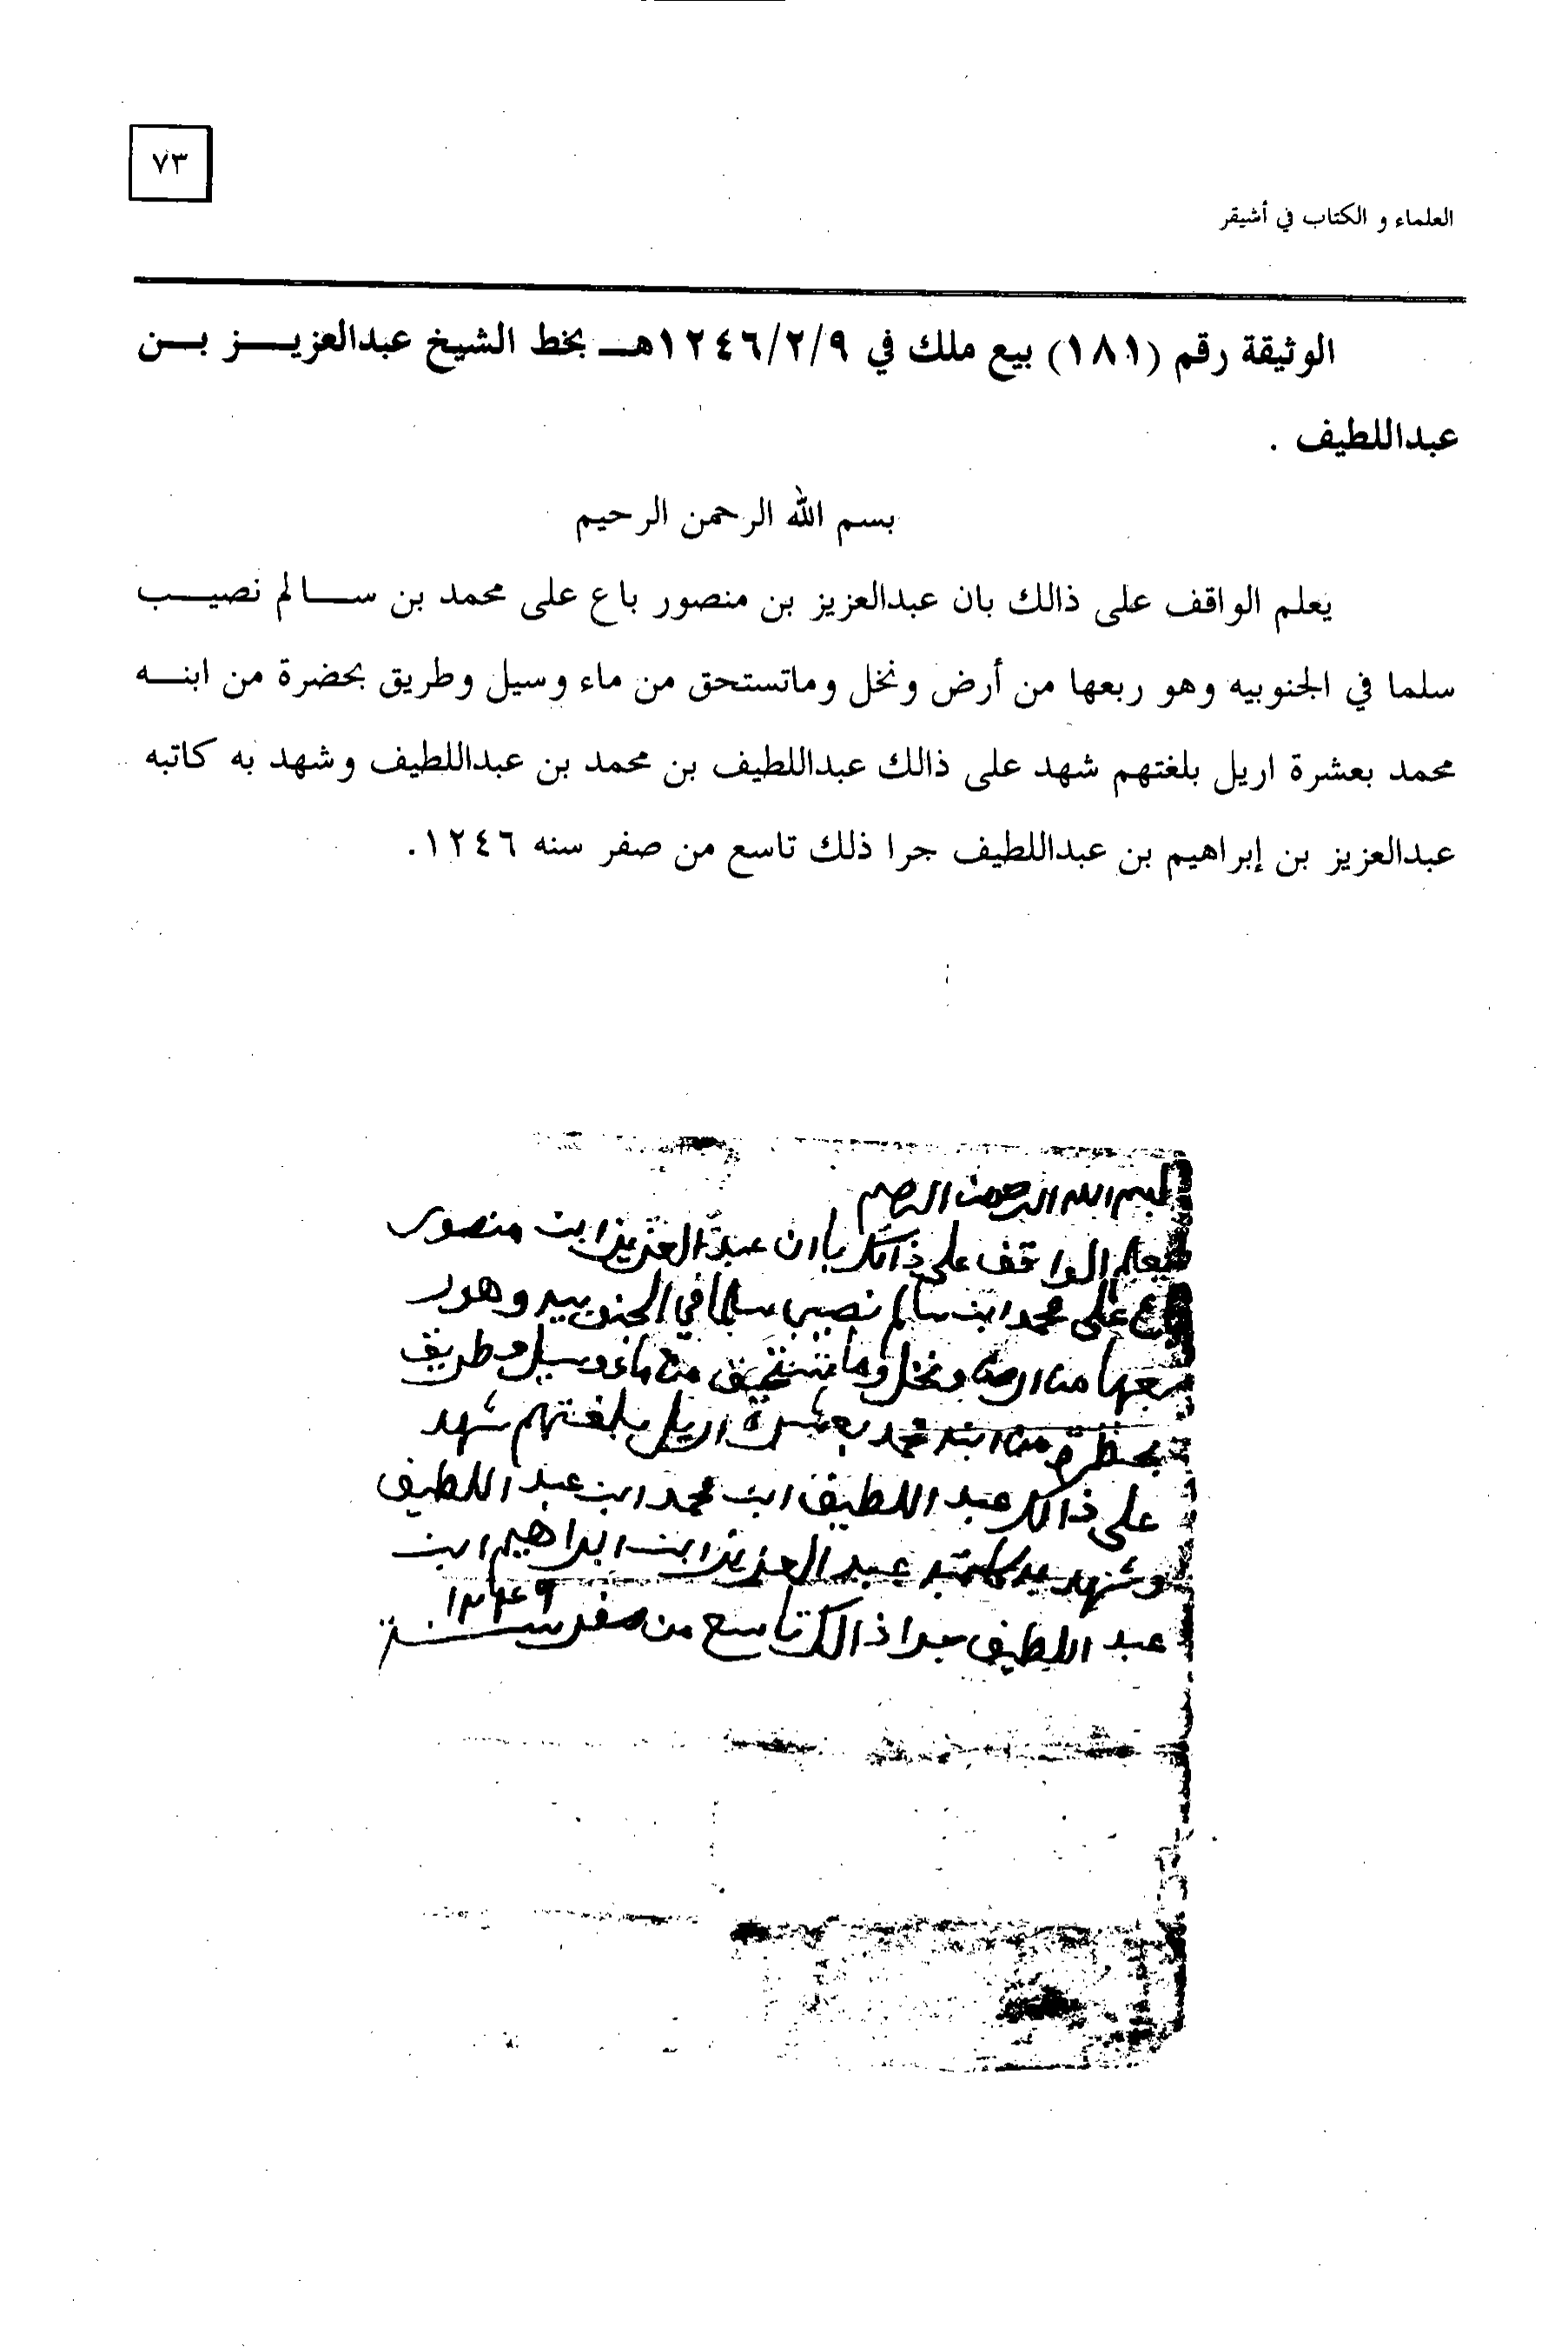 ٧٣
العلماء و الكتاب في أشيقر
الوثيقة رقم (١٨١) بيع ملك في ١٢٤٦/٢/٩هـ بخط الشيخ عبدالعزيز بن
عبداللطيف .
بسم الله الرحمن الرحيم
يعلم الواقف على ذالك بان عبدالعزيز بن منصور باع على محمد بن سالم نصيب
سلما في الجنوبيه وهو ربعها من أرض ونخل وماتستحق من ماء وسيل وطريق بحضرة من ابنه
محمد بعشرة اريل بلغتهم شهد على ذالك عبداللطيف بن محمد بن عبداللطيف وشهد به كاتبه
عبدالعزيز بن إبراهيم بن عبداللطيف جرا ذلك تاسع من صفر سنه ١٢٤٦.
بسم الله الرحمن الرحيم
يعلم الواقف على ذالك بان عبد العزيز ابن منصور
باع على محمد ابن سالم نصيب سلما في الجنوبيه وهو ر
بعها من ارض ونخل وما تستحق من ماء وسيل وطريق
بحظرة من ابنه محمد بعشرة اريل بلغتهم شهد
على ذالك عبد اللطيف ابن محمد ابن عبد اللطيف
وشهد به كاتبه عبد العزيز ابن ابراهيم ابن
عبد اللطيف جرا ذالك تاسع من صفر سنة ١٢٤٦